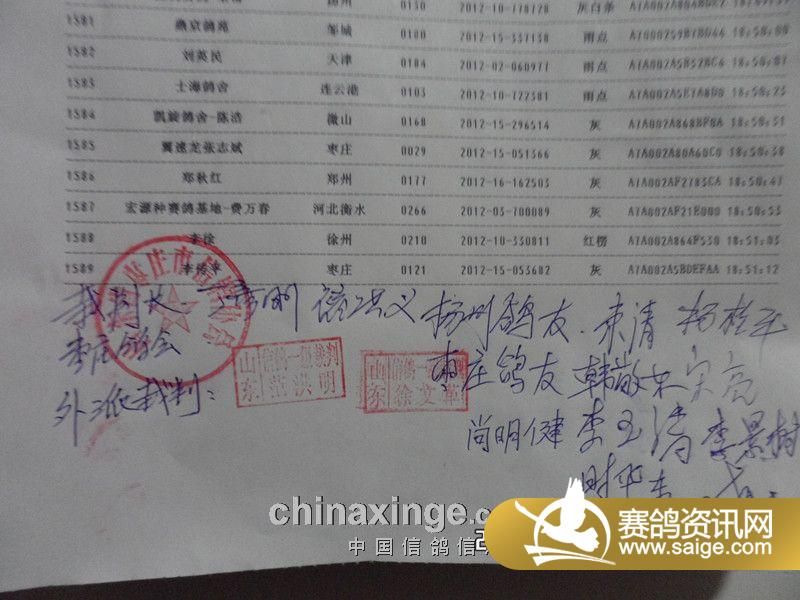 0130 2012-10-778728 灰白条
1581 燕京鸽苑 邹城 0100 2012-15-337138 雨点 18:50:00
1582 刘英民 天津 0184 2012-02-060977 雨点 18:50:07
1583 士海鸽舍 连云港 0103 2012-10-722381 雨点 18:50:23
1584 凯旋鸽舍-陈浩 微山 0168 2012-15-296514 灰 A7A002A868BF0A 18:50:31
1585 翼速龙张志斌 枣庄 0029 2012-15-051366 灰 A7A002A80A60C0 18:50:38
1586 郑秋红 郑州 0177 2012-16-162503 灰 A7A002AF2783CA 18:50:47
1587 宏源种赛鸽基地-费万春 河北衡水 0266 2012-03-700089 灰 A7A002AF21E000 18:50:53
1588 李徐 徐州 0210 2012-10-330811 红楞 A7A002A864F530 18:51:03
1589 枣庄 0121 2012-15-053682 灰 A7A002A5BDEFAA 18:51:12
枣庄市信鸽协会
裁判长 扬州鸽友 朱清 杨桂平
枣庄鸽会 枣庄鸽友
外派裁判:
山东 信鸽一级裁判 范洪明
山东 信鸽一级裁判 徐文革
尚明健 李玉清 李景树
chinaxinge.c
中国信鸽信
赛鸽资讯网
www.saige.com